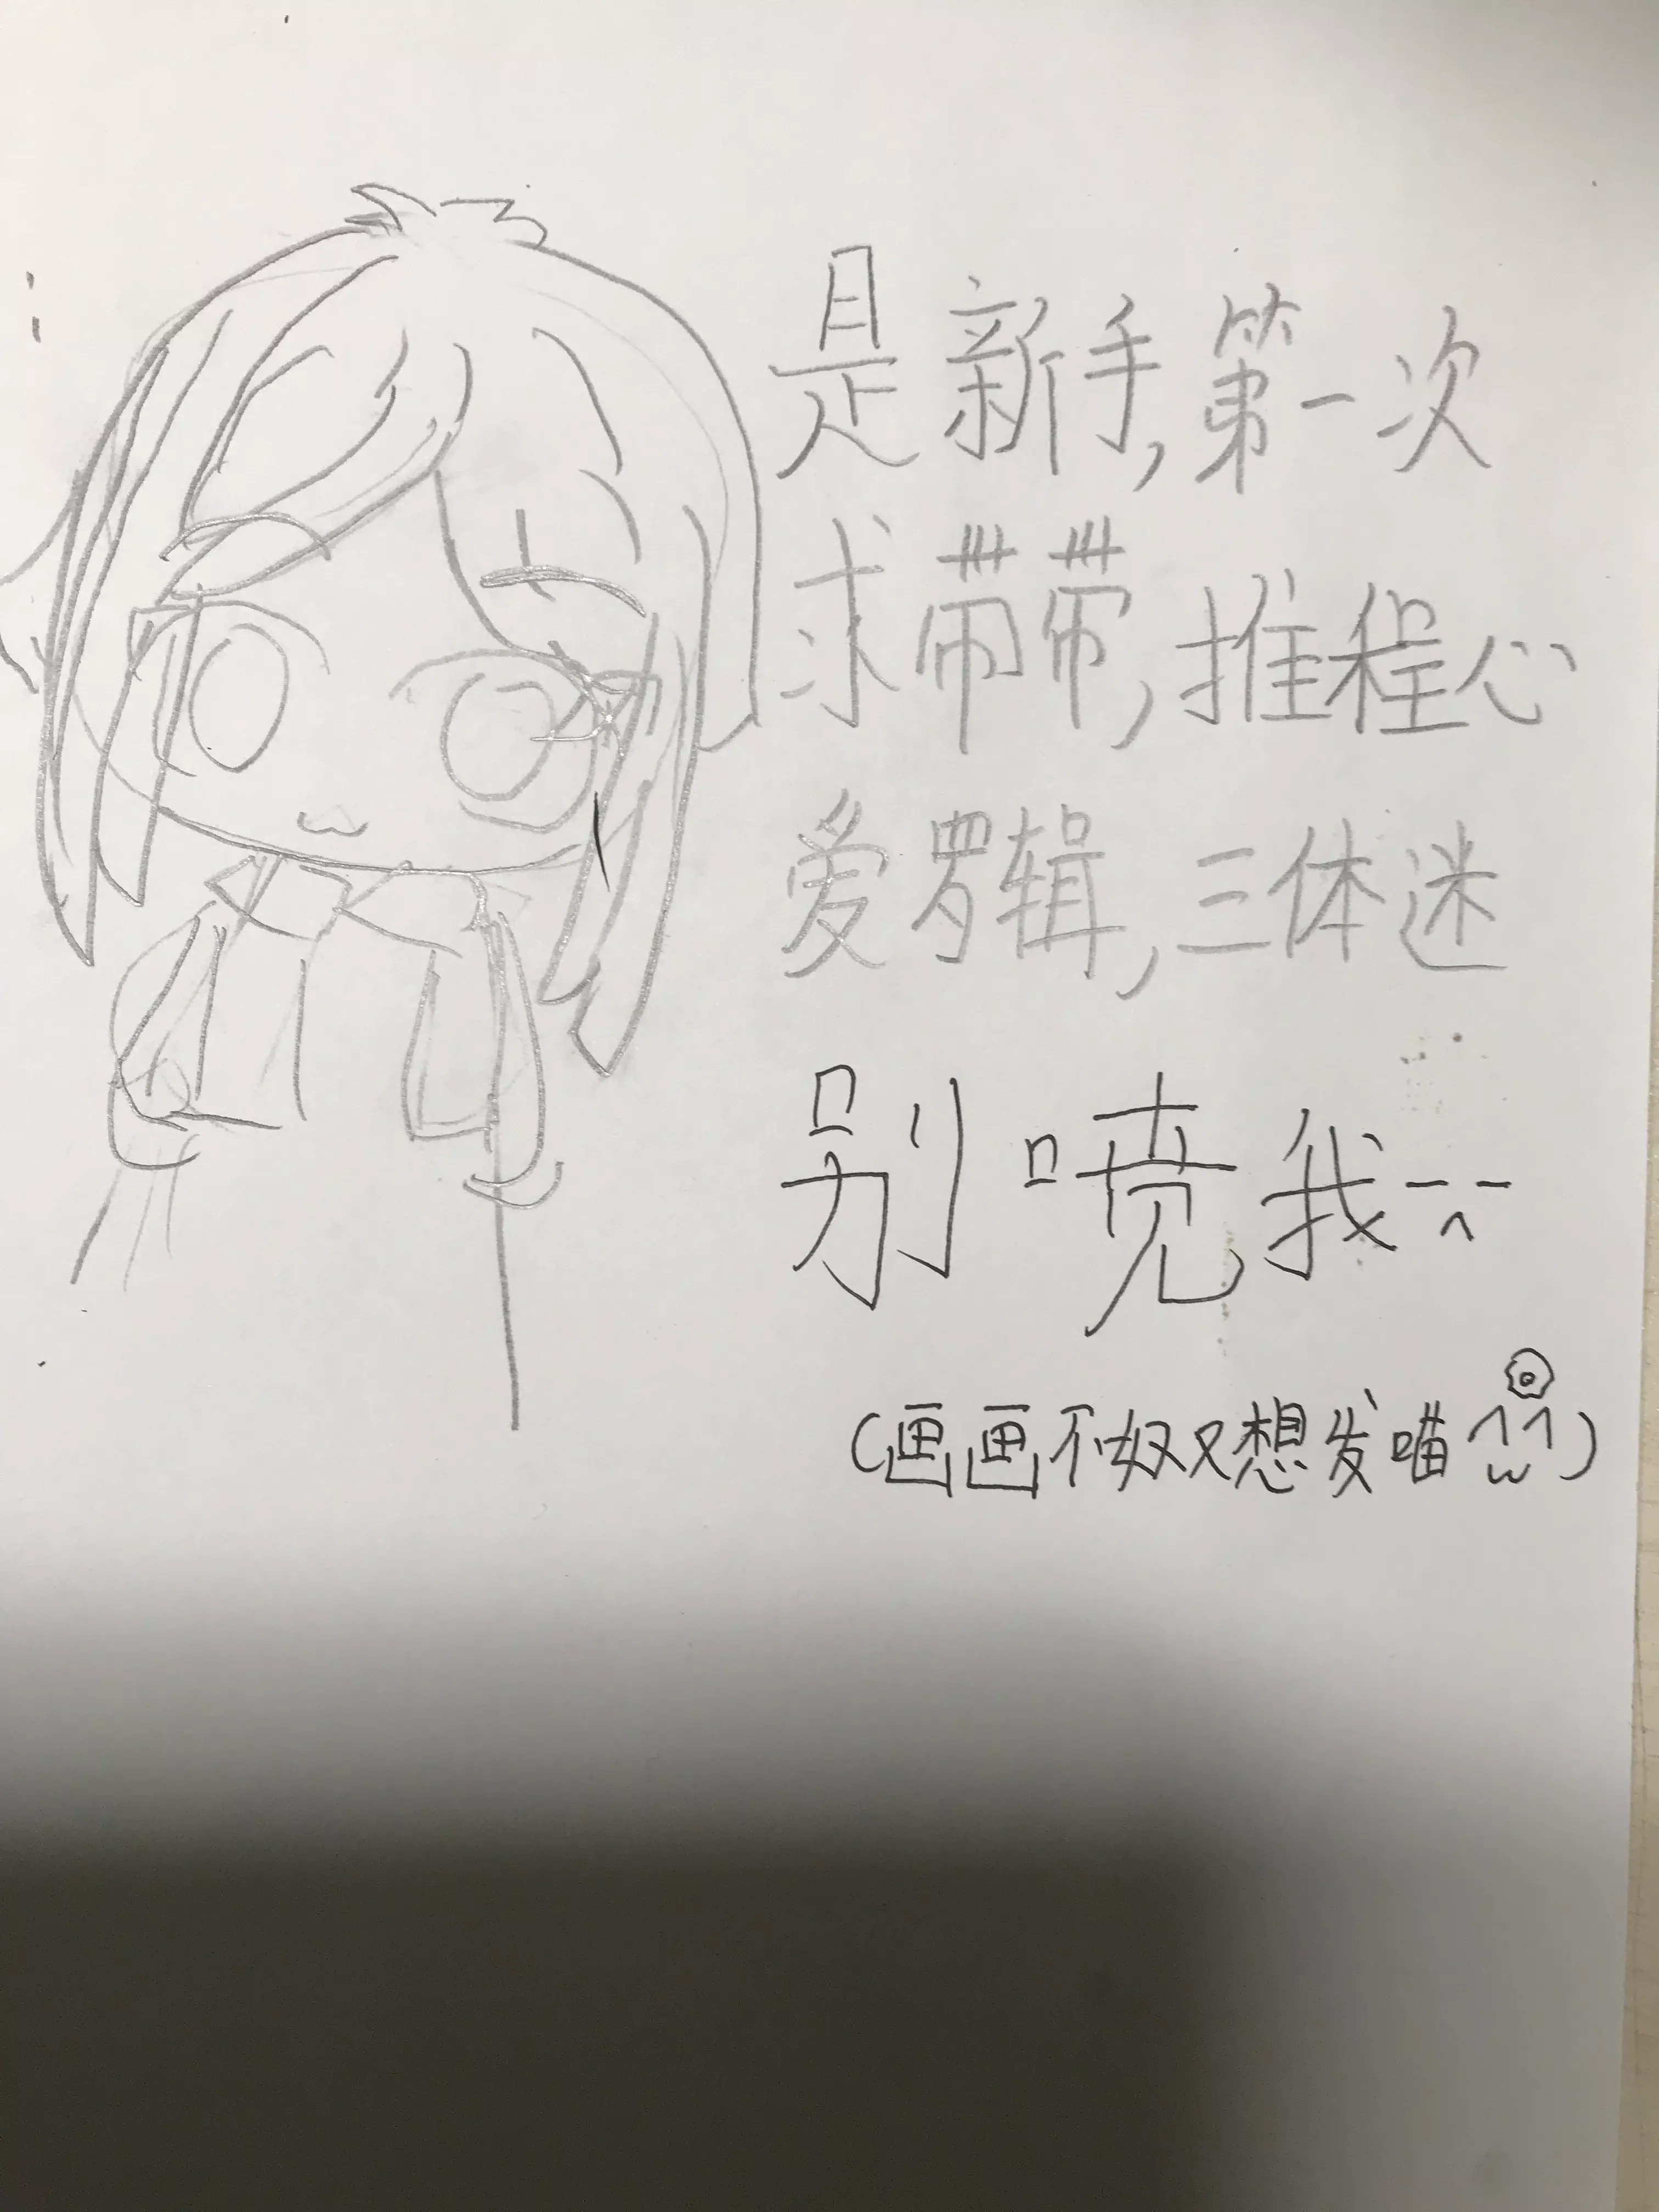 是新手,第一次
求带带,推程心
爱罗辑,三体迷
别喷我
(画画不好又想发喵)